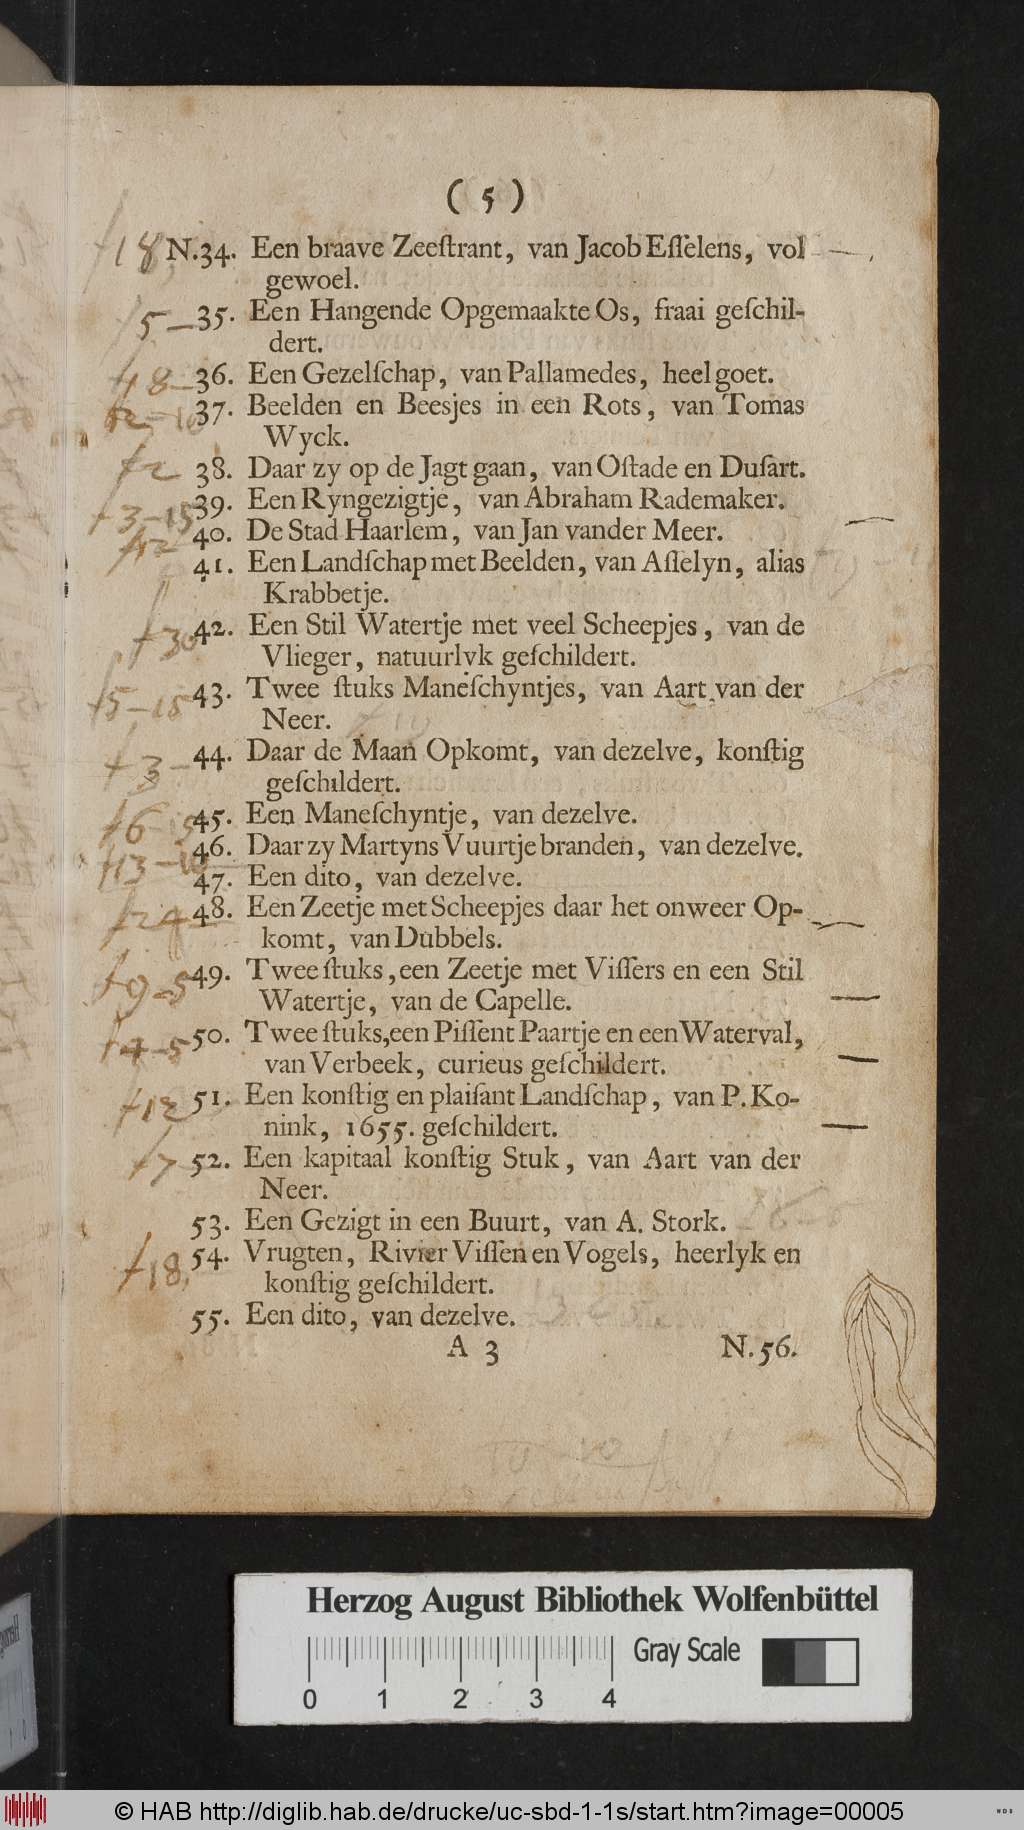 ( 5 )
18 N.34. Een braave Zeeſtrant, van Jacob Eſſelens, vol
gewoel.
5 — 35. Een Hangende Opgemaakte Os, fraai geſchil-
dert.
18 — 36. Een Gezelſchap, van Pallamedes, heel goet.
12 — 10 37. Beelden en Beesjes in een Rots, van Tomas
Wyck.
2 38. Daar zy op de Jagt gaan, van Oſtade en Duſart.
3 - 15 39. Een Ryngezigtje, van Abraham Rademaker.
12 40. De Stad Haarlem, van Jan vander Meer.
41. Een Landſchap met Beelden, van Aſſelyn, alias
Krabbetje.
30 42. Een Stil Watertje met veel Scheepjes, van de
Vlieger, natuurlyk geſchildert.
5 - 15 43. Twee ſtuks Maneſchyntjes, van Aart van der
Neer.
3 — 44. Daar de Maan Opkomt, van dezelve, konſtig
geſchildert.
6 - 15 45. Een Maneſchyntje, van dezelve.
13 - 10 46. Daar zy Martyns Vuurtje branden, van dezelve.
47. Een dito, van dezelve.
24 48. Een Zeetje met Scheepjes daar het onweer Op-
komt, van Dubbels.
9 - 5 49. Twee ſtuks, een Zeetje met Viſſers en een Stil
Watertje, van de Capelle.
4 - 5 50. Twee ſtuks, een Piſſent Paartje en een Waterval,
van Verbeek, curieus geſchildert.
12 51. Een konſtig en plaiſant Landſchap, van P. Ko-
nink, 1655. geſchildert.
7 52. Een kapitaal konſtig Stuk, van Aart van der
Neer.
53. Een Gezigt in een Buurt, van A. Stork.
18 54. Vrugten, Rivier Viſſen en Vogels, heerlyk en
konſtig geſchildert.
55. Een dito, van dezelve.
A 3 N. 56.
Herzog August Bibliothek Wolfenbüttel
Gray Scale
0 1 2 3 4
© HAB http://diglib.hab.de/drucke/uc-sbd-1-1s/start.htm?image=00005